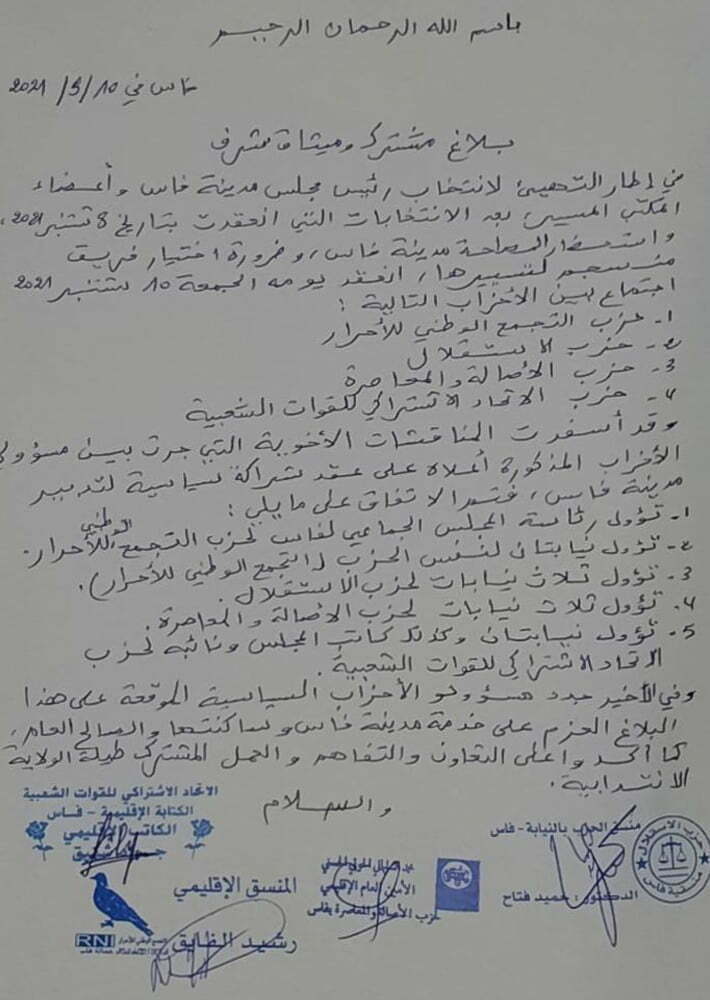 باسم الله الرحمان الرحيم
فاس في 10/9/2021
بلاغ مشترك وميثاق شرف
في إطار التهييئ لانتخاب رئيس مجلس مدينة فاس وأعضاء
المكتب المسير، بعد الانتخابات التي انعقدت بتاريخ 8 شتنبر 2021،
واستحضارا لمصلحة مدينة فاس، وضرورة اختيار فريق
منسجم لتسييرها، انعقد يومه الجمعة 10 شتنبر 2021
اجتماع بين الأحزاب التالية:
1- حزب التجمع الوطني للأحرار
2- حزب الاستقلال
3- حزب الأصالة والمعاصرة
4- حزب الاتحاد الاشتراكي للقوات الشعبية
وقد أسفرت المناقشات الأخوية التي جرت بين مسؤولي
الأحزاب المذكورة أعلاه على عقد شراكة سياسية لتدبير
مدينة فاس، فتم الاتفاق على ما يلي:
1- تؤول رئاسة المجلس الجماعي لفاس لحزب التجمع الوطني للأحرار.
2- تؤول نيابتان لنفس الحزب (التجمع الوطني للأحرار).
3- تؤول ثلاث نيابات لحزب الاستقلال.
4- تؤول ثلاث نيابات لحزب الأصالة والمعاصرة.
5- تؤول نيابتان وكذلك كاتب المجلس ونائبه لحزب
الاتحاد الاشتراكي للقوات الشعبية.
وفي الأخير جدد مسؤولو الأحزاب السياسية الموقعة على هذا
البلاغ العزم على خدمة مدينة فاس وساكنتها والصالح العام،
كما أكدوا على التعاون والتفاهم والعمل المشترك طيلة الولاية
الانتدابية.
والسلام
الاتحاد الاشتراكي للقوات الشعبية
الكتابة الإقليمية - فاس
الكاتب الإقليمي
منسق الحزب بالنيابة - فاس
الدكتور: حميد فتاح
حزب الاستقلال
الأمين العام الإقليمي
حزب الأصالة والمعاصرة بفاس
المنسق الإقليمي
رشيد الفايق
RNI